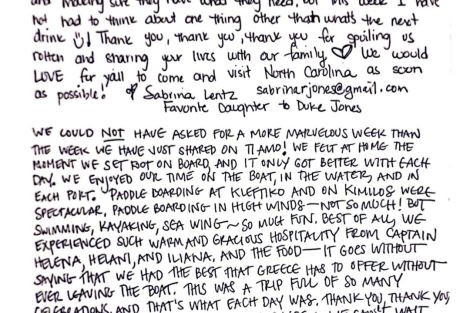 and making sure they have what they need, but this week I have
not had to think about one thing other than what's the next
drink Thank you, thank you, thank you for spoiling us
rotten and sharing your lives with our family ♡ We would
LOVE for y'all to come and visit North Carolina as soon
as possible! Sabrina Lentz sabrinarjones@gmail.com
Favorite Daughter to Duke Jones
WE COULD NOT HAVE ASKED FOR A MORE MARVELOUS WEEK THAN
THE WEEK WE HAVE JUST SHARED ON TI AMO! WE FELT AT HOME THE
MOMENT WE SET FOOT ON BOARD, AND IT ONLY GOT BETTER WITH EACH
DAY. WE ENJOYED OUR TIME ON THE BOAT, IN THE WATER, AND IN
EACH PORT. PADDLE BOARDING AT KLEFTIKO AND ON KIMILOS WERE
SPECTACULAR, PADDLE BOARDING IN HIGH WINDS—NOT SO MUCH! BUT
SWIMMING, KAYAKING, SEA WING~ SO MUCH FUN. BEST OF ALL, WE
EXPERIENCED SUCH WARM AND GRACIOUS HOSPITALITY FROM CAPTAIN
HELENA, HELANI, AND ILIANA, AND THE FOOD—IT GOES WITHOUT
SAYING THAT WE HAD THE BEST THAT GREECE HAS TO OFFER WITHOUT
EVER LEAVING THE BOAT. THIS WAS A TRIP FULL OF SO MANY
CELEBRATIONS, AND THAT'S WHAT EACH DAY WAS. THANK YOU, THANK YOU,
WE CAN'T WAIT